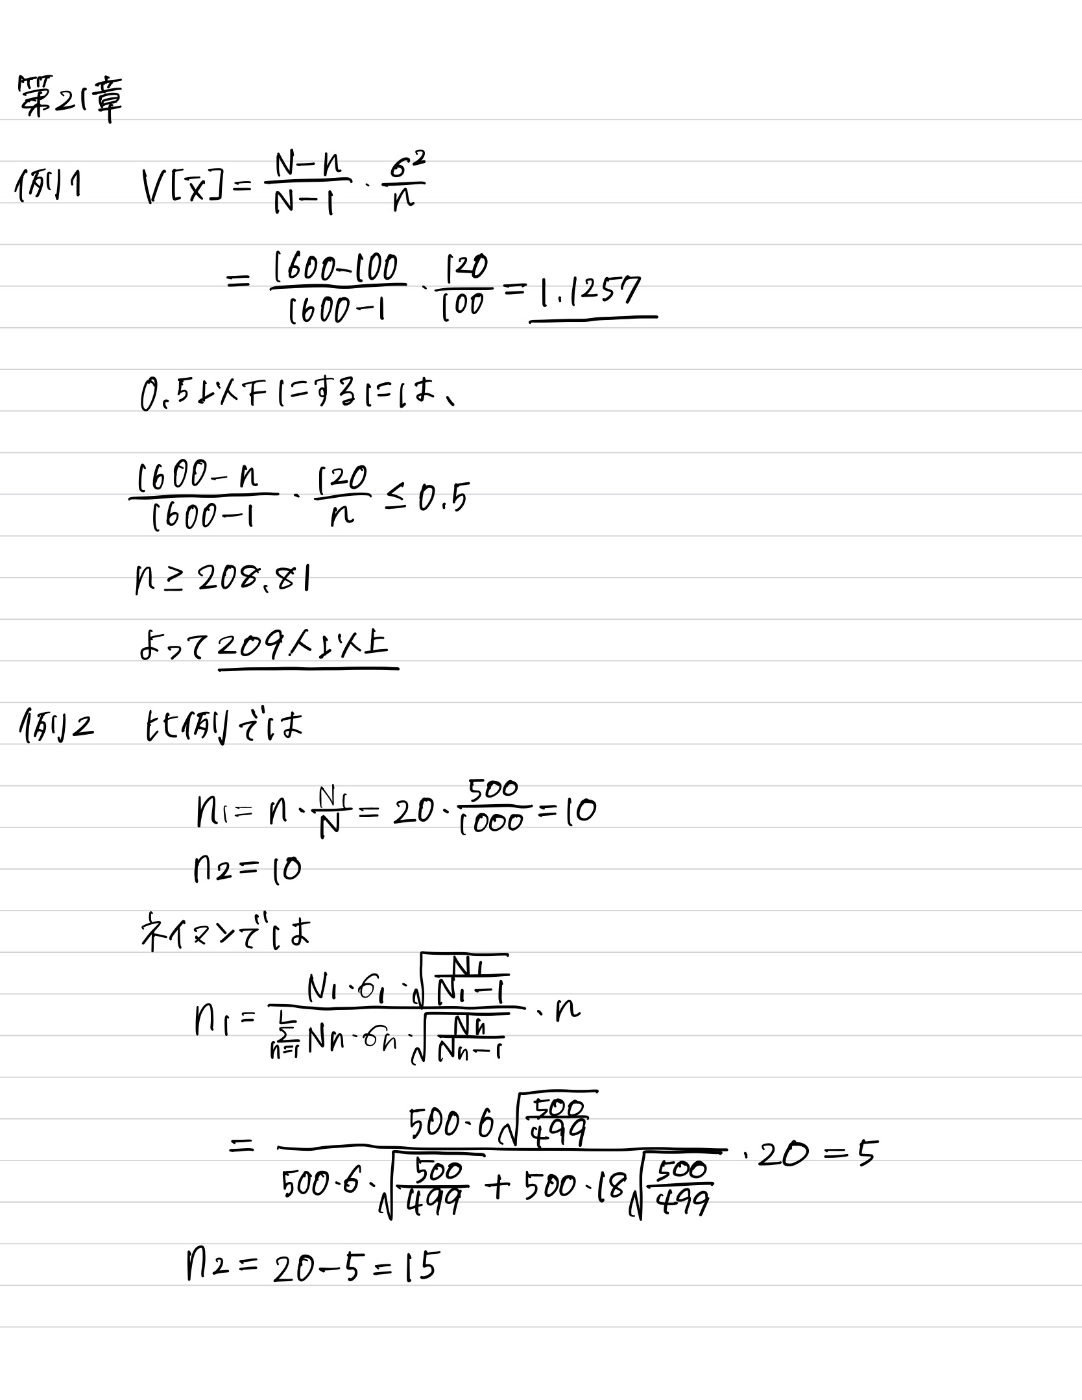 第21章
例1 V[x̄] = (N-n)/(N-1) · σ²/n
= (1600-100)/(1600-1) · 120/100 = 1.1257
0.5以下にするには、
(1600-n)/(1600-1) · 120/n ≤ 0.5
n ≥ 208.81
よって209人以上
例2 比例では
n₁ = n · N₁/N = 20 · 500/1000 = 10
n₂ = 10
ネイマンでは
n₁ = (N₁·σ₁·√(N₁/(N₁-1)))/(Σ_{n=1}^{L} Nn·σn·√(Nn/(Nn-1))) · n
= (500·6√(500/499))/(500·6·√(500/499) + 500·18√(500/499)) · 20 = 5
n₂ = 20-5 = 15